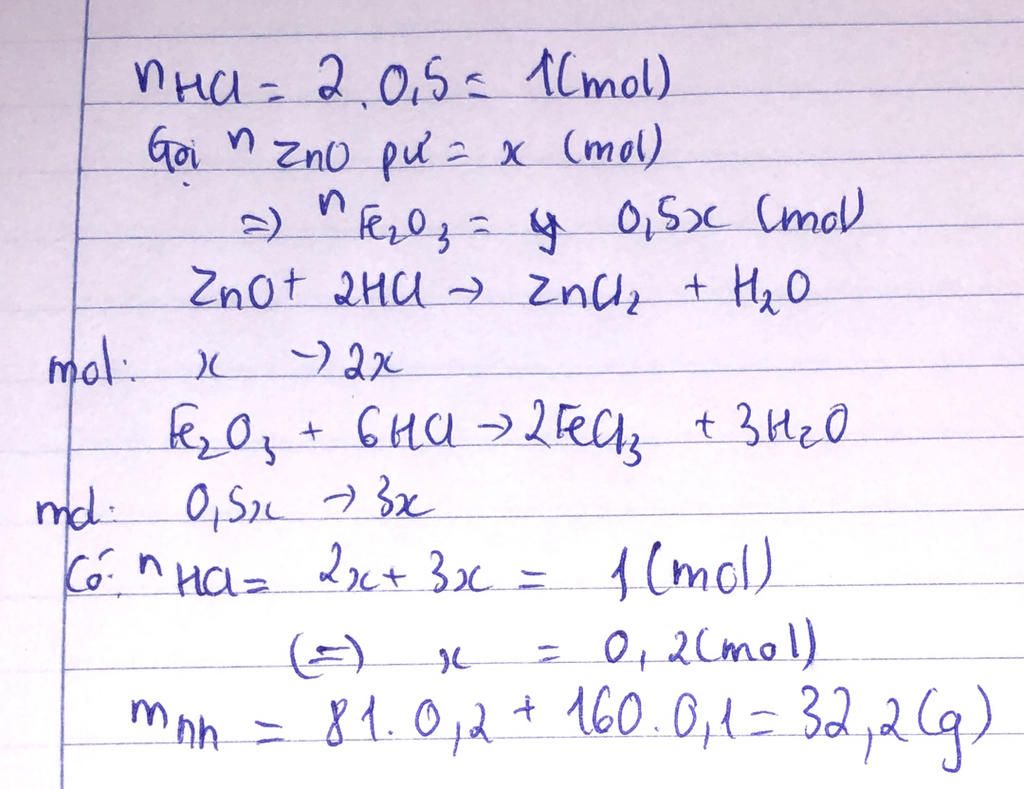 nHCl = 2.0,5 = 1(mol)
Gọi nZnO pư = x (mol)
=) nFe₂O₃ = 0,5x (mol)
ZnO + 2HCl → ZnCl₂ + H₂O
mol: x → 2x
Fe₂O₃ + 6HCl → 2FeCl₃ + 3H₂O
mol: 0,5x → 3x
Có: nHCl = 2x + 3x = 1(mol)
(=) x = 0,2(mol)
mhh = 81.0,2 + 160.0,1 = 32,2(g)